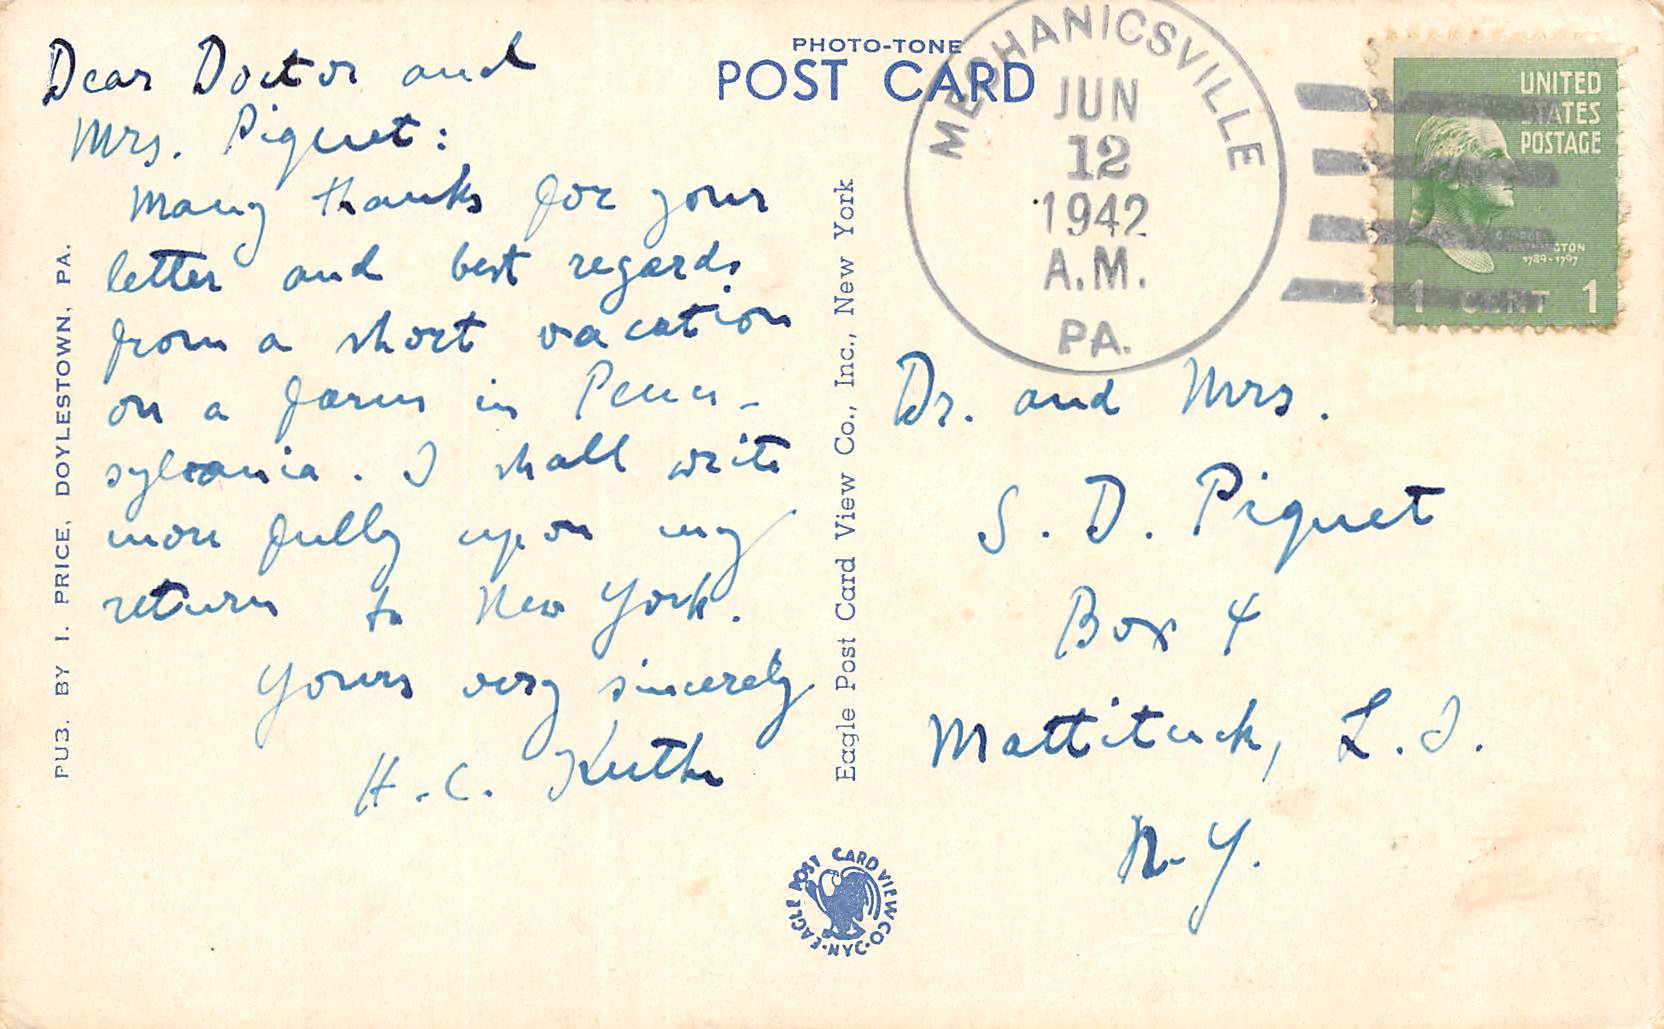 Dear Doctor and
Mrs. Piquet:
Many thanks for your
letter and best regards
from a short vacation
on a farm in Penn-
sylvania. I shall write
more fully upon my
return to New York.
Yours very sincerely
H. C.
PUB. BY I. PRICE, DOYLESTOWN, PA.
PHOTO-TONE
POST CARD
Eagle Post Card View Co., Inc., New York
EAGLE POST CARD VIEW CO. · NYC ·
MECHANICSVILLE
JUN
12
1942
A.M.
PA.
UNITED
STATES
POSTAGE
GEORGE
WASHINGTON
1789-1797
1 CENT 1
Dr. and Mrs.
S. D. Piquet
Box 4
Mattituck, L. I.
N. Y.